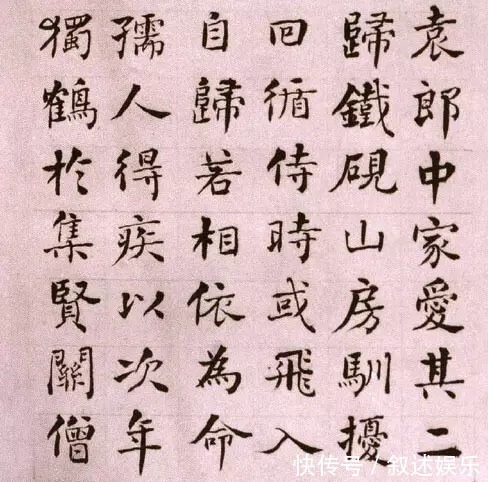 袁郎中家愛其二
歸鐵硯山房馴擾
回循侍時或飛入
自歸若相依為命
孺人得疾以次年
獨鶴於集賢關僧
快传号/叙述娱乐